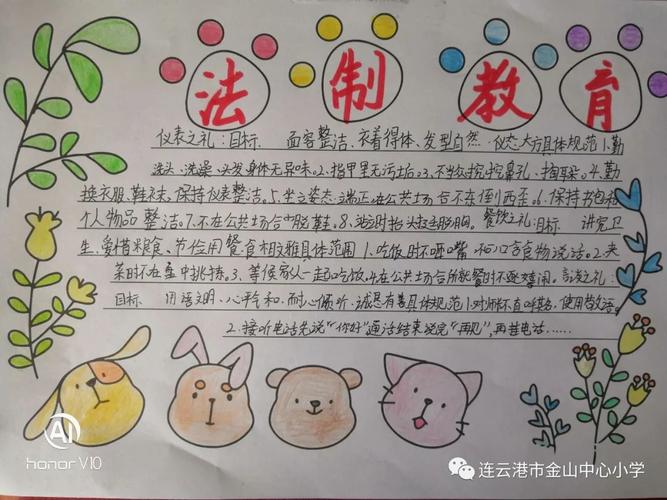 法制教育
仪表之礼：目标 面容整洁、衣着得体、发型自然、仪态大方具体规范1.勤
洗头、洗澡、头发身体无异味。2、指甲里无污垢。3、不当众挖鼻孔、掏耳朵。4.勤
换衣服、鞋袜，保持仪表整洁。5.坐立姿态端正在公共场合不东倒西歪。6、保持书包和
个人物品整洁。7、不在公共场合中脱鞋。8、站立时抬头挺胸。餐饮之礼：目标 讲究卫
生、爱惜粮食、节俭用餐食相文雅具体范围1、吃饭时不咂嘴和口含食物说话。2.夹
菜时不在盘中挑拣。3、等候家人一起吃饭。4.在公共场合所就餐时不逐嬉闹。言谈之礼：
目标 用语文明、心平气和、耐心倾听、诚恳友善具体规范1.对师长不直呼其名，使用敬语。
2.接听电话先说“你好”通话结束说完“再见”，再挂电话……
AI
honor V10
连云港市金山中心小学